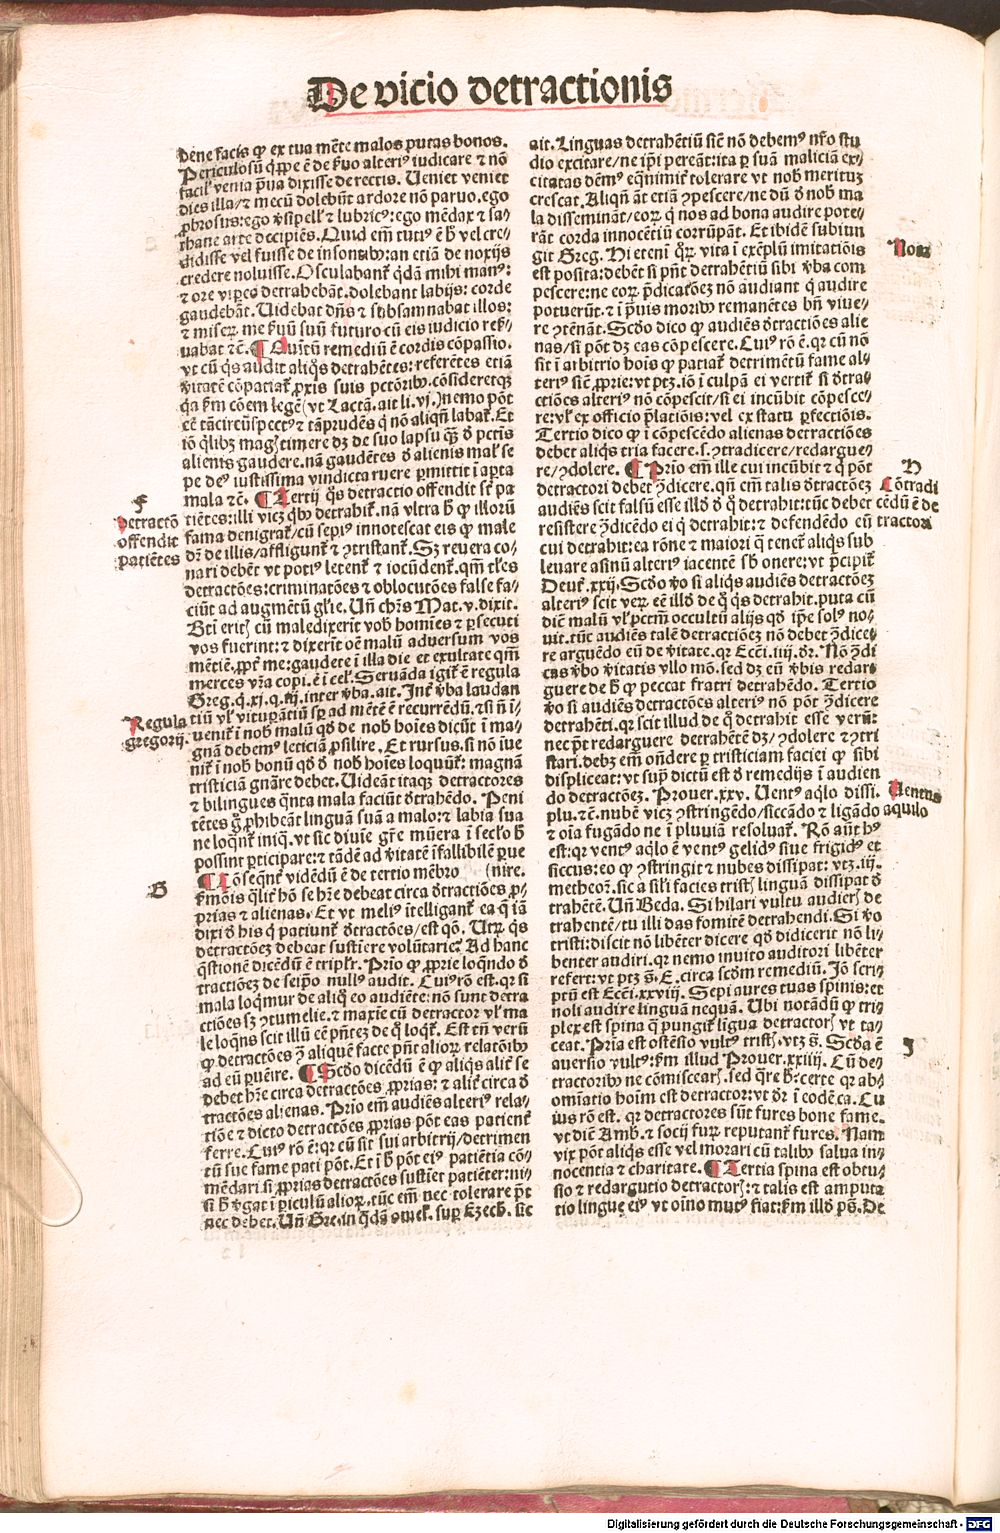 De vicio detractionis
bene facis ꝙ ex tua mēte malos putas bonos.
Periculosū q̄ppe ē de ẜuo alteriꝰ iudicare ⁊ nō
facilꝰ venia p̄ua dixisse de rectis. Veniet veniet
dies illa/⁊ mecū dolebūt ardore nō paruo. ego
ꝓbrosus: ego v̄sipell' ⁊ lubricꝰ: ego mēdax ⁊ sa/
thane arte decipiēs. Quid em̄ tutiꝰ ē h̄ vel cre/
didisse vel fuisse de insontibꝰ: an etiā de noxijs
credere noluisse. Osculabant̄ q̄dā mihi manꝰ:
⁊ ore viꝑeo detrahebāt. dolebant labijs: corde
gaudebāt. Videbat dn̄s ⁊ subsannabat illos:
⁊ miseꝝ me ẜuū suū futuro cū eis iudicio reẜ/
uabat ⁊c̄. ¶ Quītū remediū ē cordis cōpassio.
vt cū q̄s audit aliq̄s detrahētes: referētes etiā
v̄itatē cōpatiat̄ ꝓxis suis pctōribꝰ. cōsideretqꝫ
q̄a ẜm cōem legē (vt Lactā. ait li. vj.) nemo pōt
eē tācircūspectꝰ ⁊ tāprudēs q̄ nō aliqn̄ labat̄. Et
iō q̄libꝫ magꝭ timere dꝫ de suo lapsu q̄ꝫ d̄ pctīs
alienis gaudere. nā gaudētes d̄ alienis malꝭ se
pe deꝰ iustissima vindicta ruere ꝑmittit ī apta
mala ⁊c̄. ¶ Tertij q̄s detractio offendit st̄ pa
tiētes: illi vicꝫ q̄bꝰ detrahit̄. nā vltra h̄ ꝙ illorū
fama denigrat̄/cū sepiꝰ innotescat eis ꝙ male
dr̄ de illis/affligunt̄ ⁊ ꝯtristant̄. Sꝫ reuera co/
nari debēt vt potiꝰ letent̄ ⁊ iocūdent̄. qm̄ tl̄es
detractōes: criminatōes ⁊ oblocutōes false fa/
ciūt ad augmētū gl̄ie. Vn̄ ch̄rs Mat. v. dixit.
Bt̄i eritꝭ cū maledixerīt vob̄ homīes ⁊ ꝑsecuti
vos fuerint: ⁊ dixerīt oē malū aduersum vos
mētiē. ꝓpt̄ me: gaudete ī illa die et exultate qm̄
merces vr̄a copi. ē ī cel'. Seruāda igit̄ ē regula
Greg. q̄. xj. q. iij. inter v̄ba. ait. Int̄ v̄ba laudan
tiū vl' vituꝑātiū sꝑ ad mētē ē recurrēdū. ⁊ si n̄ ī/
uenit̄ ī nob̄ malū qd̄ de nob̄ hoīes dicūt ī ma/
gnā debemꝰ leticiā ꝓsilire. Et rursus. si nō īue
nit̄ ī nob̄ bonū qd̄ d̄ nob̄ hoīes loquūt̄: magnā
tristiciā gnāre debet. Videāt itaqꝫ detractores
⁊ bilingues q̄nta mala faciūt d̄trahēdo. Peni
tētes ḡ ꝓhibeāt linguā suā a malo: ⁊ labia sua
ne loqūnt̄ iniq̄. vt sic diuīe gr̄e mūera ī seclo h̄
possint ꝑticipare: ⁊ tādē ad v̄itatē īfallibilē ꝑue
¶ Cōseqn̄t̄ vidēdū ē de tertio mēbro (nire.
ẜmōis q̄lit̄ hō se hr̄e debeat circa d̄tractiōes ꝓ/
prias ⁊ alienas. Et vt meliꝰ ītelligant̄ ea q̄ iā
dixi d̄ his q̄ patiunt̄ d̄tractōes/est qō. Vtꝝ q̄s
detractōeꝫ debeat sustīere volūtarie? Ad hanc
q̄stionē dicēdū ē tripl'r. Prīo ꝙ ꝓprie loqn̄do d̄
tractiōeꝫ de seip̄o nullꝰ audit. Cuiꝰ rō est. qr si
mala loq̄mur de aliq̄ eo audiēte: nō sunt detra
ctiōes sꝫ ꝯtumelie. ⁊ maxīe cū detractor vl' ma
le loqn̄s scit illū eē pn̄teꝫ de q̄ loqt̄. Est tn̄ verū
ꝙ detractōes ꝯ̄ aliquē facte pn̄t alioꝝ relatōibꝰ
ad eū ꝑuēire. ¶ Scd̄o dicēdū ē ꝙ aliq̄s alit̄ se
debet hr̄e circa detractōes ꝓprias: ⁊ alit̄ circa d̄
tractōes alienas. Prīo em̄ audiēs alteriꝰ rela/
tiōe ⁊ dicto detractōes ꝓprias pōt eas patient̄
ferre. Cuiꝰ rō ē: qr cū sit sui arbitrij/detrimen
tū sue fame pati pōt. Et ī h̄ pōt eiꝰ patiētia cō/
mēdari. si ꝓprias detractōes sustīet patiēter: ni/
si h̄ v̄gat ī ꝑiculū alioꝝ. tūc em̄ nec tolerare pōt
nec debet. Vn̄ Gre. in q̄dā omel'. suꝑ Ezech. sic
ait. Linguas detrahētiū sīc nō debemꝰ nr̄o stu
dio excitare/ne ip̄i pereāt: ita ꝑ suā maliciā ex/
citatas dēmꝰ eq̄nimit̄ tolerare vt nob̄ merituꝫ
crescat. Aliqn̄ āt etiā ꝯpescere/ne dū d̄ nob̄ ma
la dissemināt/eoꝝ q̄ nos ad bona audire pote/
rāt corda innocētiū corrūpāt. Et ibidē subiun
git Greg. Hi etenī qꝝ vita ī exēplū imitatiōis
est posita: debēt si pn̄t detrahētiū sibi v̄ba com
pescere: ne eoꝝ p̄dicatōeꝫ nō audiant q̄ audire
potuerūt. ⁊ ī p̄uis moribꝰ remanētes bn̄ viue/
re ꝯtēnāt. Scd̄o dico ꝙ audiēs d̄tractiōes alie
nas/si pōt dꝫ eas cōpescere. Cuiꝰ rō ē. qr cū nō
sit ī arbitrio hoīs ꝙ patiat̄ detrimētū fame al/
teriꝰ sīc ꝓprie: vt ptꝫ. iō ī culpā ei vertit̄ si d̄tra/
ctiōes alteriꝰ nō cōpescit/si ei incūbit cōpesce/
re: vl' ex officio p̄latiōis: vel ex statu ꝑfectiōis.
Tertio dico ꝙ ī cōpescēdo alienas detractiōes
debet aliq̄s tria facere. s. ꝯtradicere/redargue/
re/ꝯdolere. ¶ Prīo em̄ ille cui incūbit ⁊ q̄ pōt
detractori debet ꝯdicere. qn̄ em̄ talis d̄tractōeꝫ
audiēs scit falsū esse illd̄ d̄ q̄ detrahit: tūc debet
resistere ꝯdicēdo ei q̄ detrahit: ⁊ defendēdo cū
cui detrahit: ea rōne ⁊ maiori q̄ tenet̄ aliq̄s sub
leuare asinū alteriꝰ iacentē sb̄ onere: vt p̄cipit̄
Deut̄. xxij. Scd̄o v̄o si aliq̄s audiēs detractōeꝫ
alteriꝰ scit veꝝ eē illd̄ de q̄ q̄s detrahit. puta cū
diē malū vl' pctm̄ occultū alijs qd̄ ip̄e solꝰ no/
uit. tūc audiēs talē detractiōeꝫ nō debet ꝯdice/
re arguēdo eū de v̄itate. qr Ecc̄i. iiij. dr̄. Nō ꝯdi
cas v̄bo v̄itatis vllo mō. sed dꝫ eū v̄bis redar/
guere de h̄ ꝙ peccat fratri detrahēdo. Tertio
v̄o si audiēs detractōes alteriꝰ nō pōt ꝯdicere
detrahēti. qr scit illud de q̄ detrahit esse verū:
nec pōt redarguere detrahētē dꝫ/ꝯdolere ⁊ ꝯtri
stari. debꝫ em̄ ondere ꝑ tristiciam faciei ꝙ sibi
displiceat: vt supͣ dictū est d̄ remedijs ī audien
do detractōeꝫ. Prouer. xxv. Ventꝰ aq̄lo dissi.
plu. ⁊c̄. nubē vicꝫ ꝯstringēdo/siccādo ⁊ ligādo
⁊ oīa fugādo ne ī pluuiā resoluat̄. Rō aūt hꝰ
est: qr ventꝰ aq̄lo ē ventꝰ gelidꝰ siue frigidꝰ et
siccus: eo ꝙ ꝯstringit ⁊ nubes dissipat: vtꝫ. iij.
metheoꝝ. sic a sil'i facies tristꝭ linguā dissipat d̄
trahētē. Vn̄ Beda. Si hilari vultu audierꝭ de
trahentē/tu illi das fomitē detrahendi. Si v̄o
tristi: discit nō libēter dicere qd̄ didicerit nō li/
benter audiri. qr nemo inuito auditori libēter
refert: vt ptꝫ s̄. E. circa scd̄m remediū. Iō scri/
ptū est Ecc̄i. xxviij. Sepi aures tuas spinis: et
noli audire linguā nequā. Vbi notādū ꝙ tri/
plex est spina q̄ pungit̄ līgua detractorꝭ vt ta/
ceat. Prīa est ostēsio vultꝰ tristꝭ. vtꝫ s̄. Scd̄a ē
auersio vultꝰ: ẜm illud Prouer. xxiiij. Cū de/
tractoribꝰ ne cōmiscearꝭ. sed q̄re h̄: certe qr ab/
omiatio hoīm est detractor: vt dr̄ ī eodē. ca. Cu
ius rō est. qr detractores sūt fures bone fame.
vt dic̄ Amb. ⁊ socij fuꝝ reputant̄ fures. Nam
vix pōt aliq̄s esse vel morari cū talibꝰ salua in/
nocentia ⁊ charitate. ¶ Tertia spina est obtu/
sio ⁊ redargutio detractorꝭ: ⁊ talis est amputa
tio lingue eiꝰ vt oīno mutꝰ fiat: ẜm illd̄ ps̄. De
F
Detractō
offendit
patiētes
Regula
gregorij.
G
Nota
H
Cōtradi
cēdū ē de
tractori
Ventus
aquilo
J
Digitalisierung gefördert durch die Deutsche Forschungsgemeinschaft - DFG